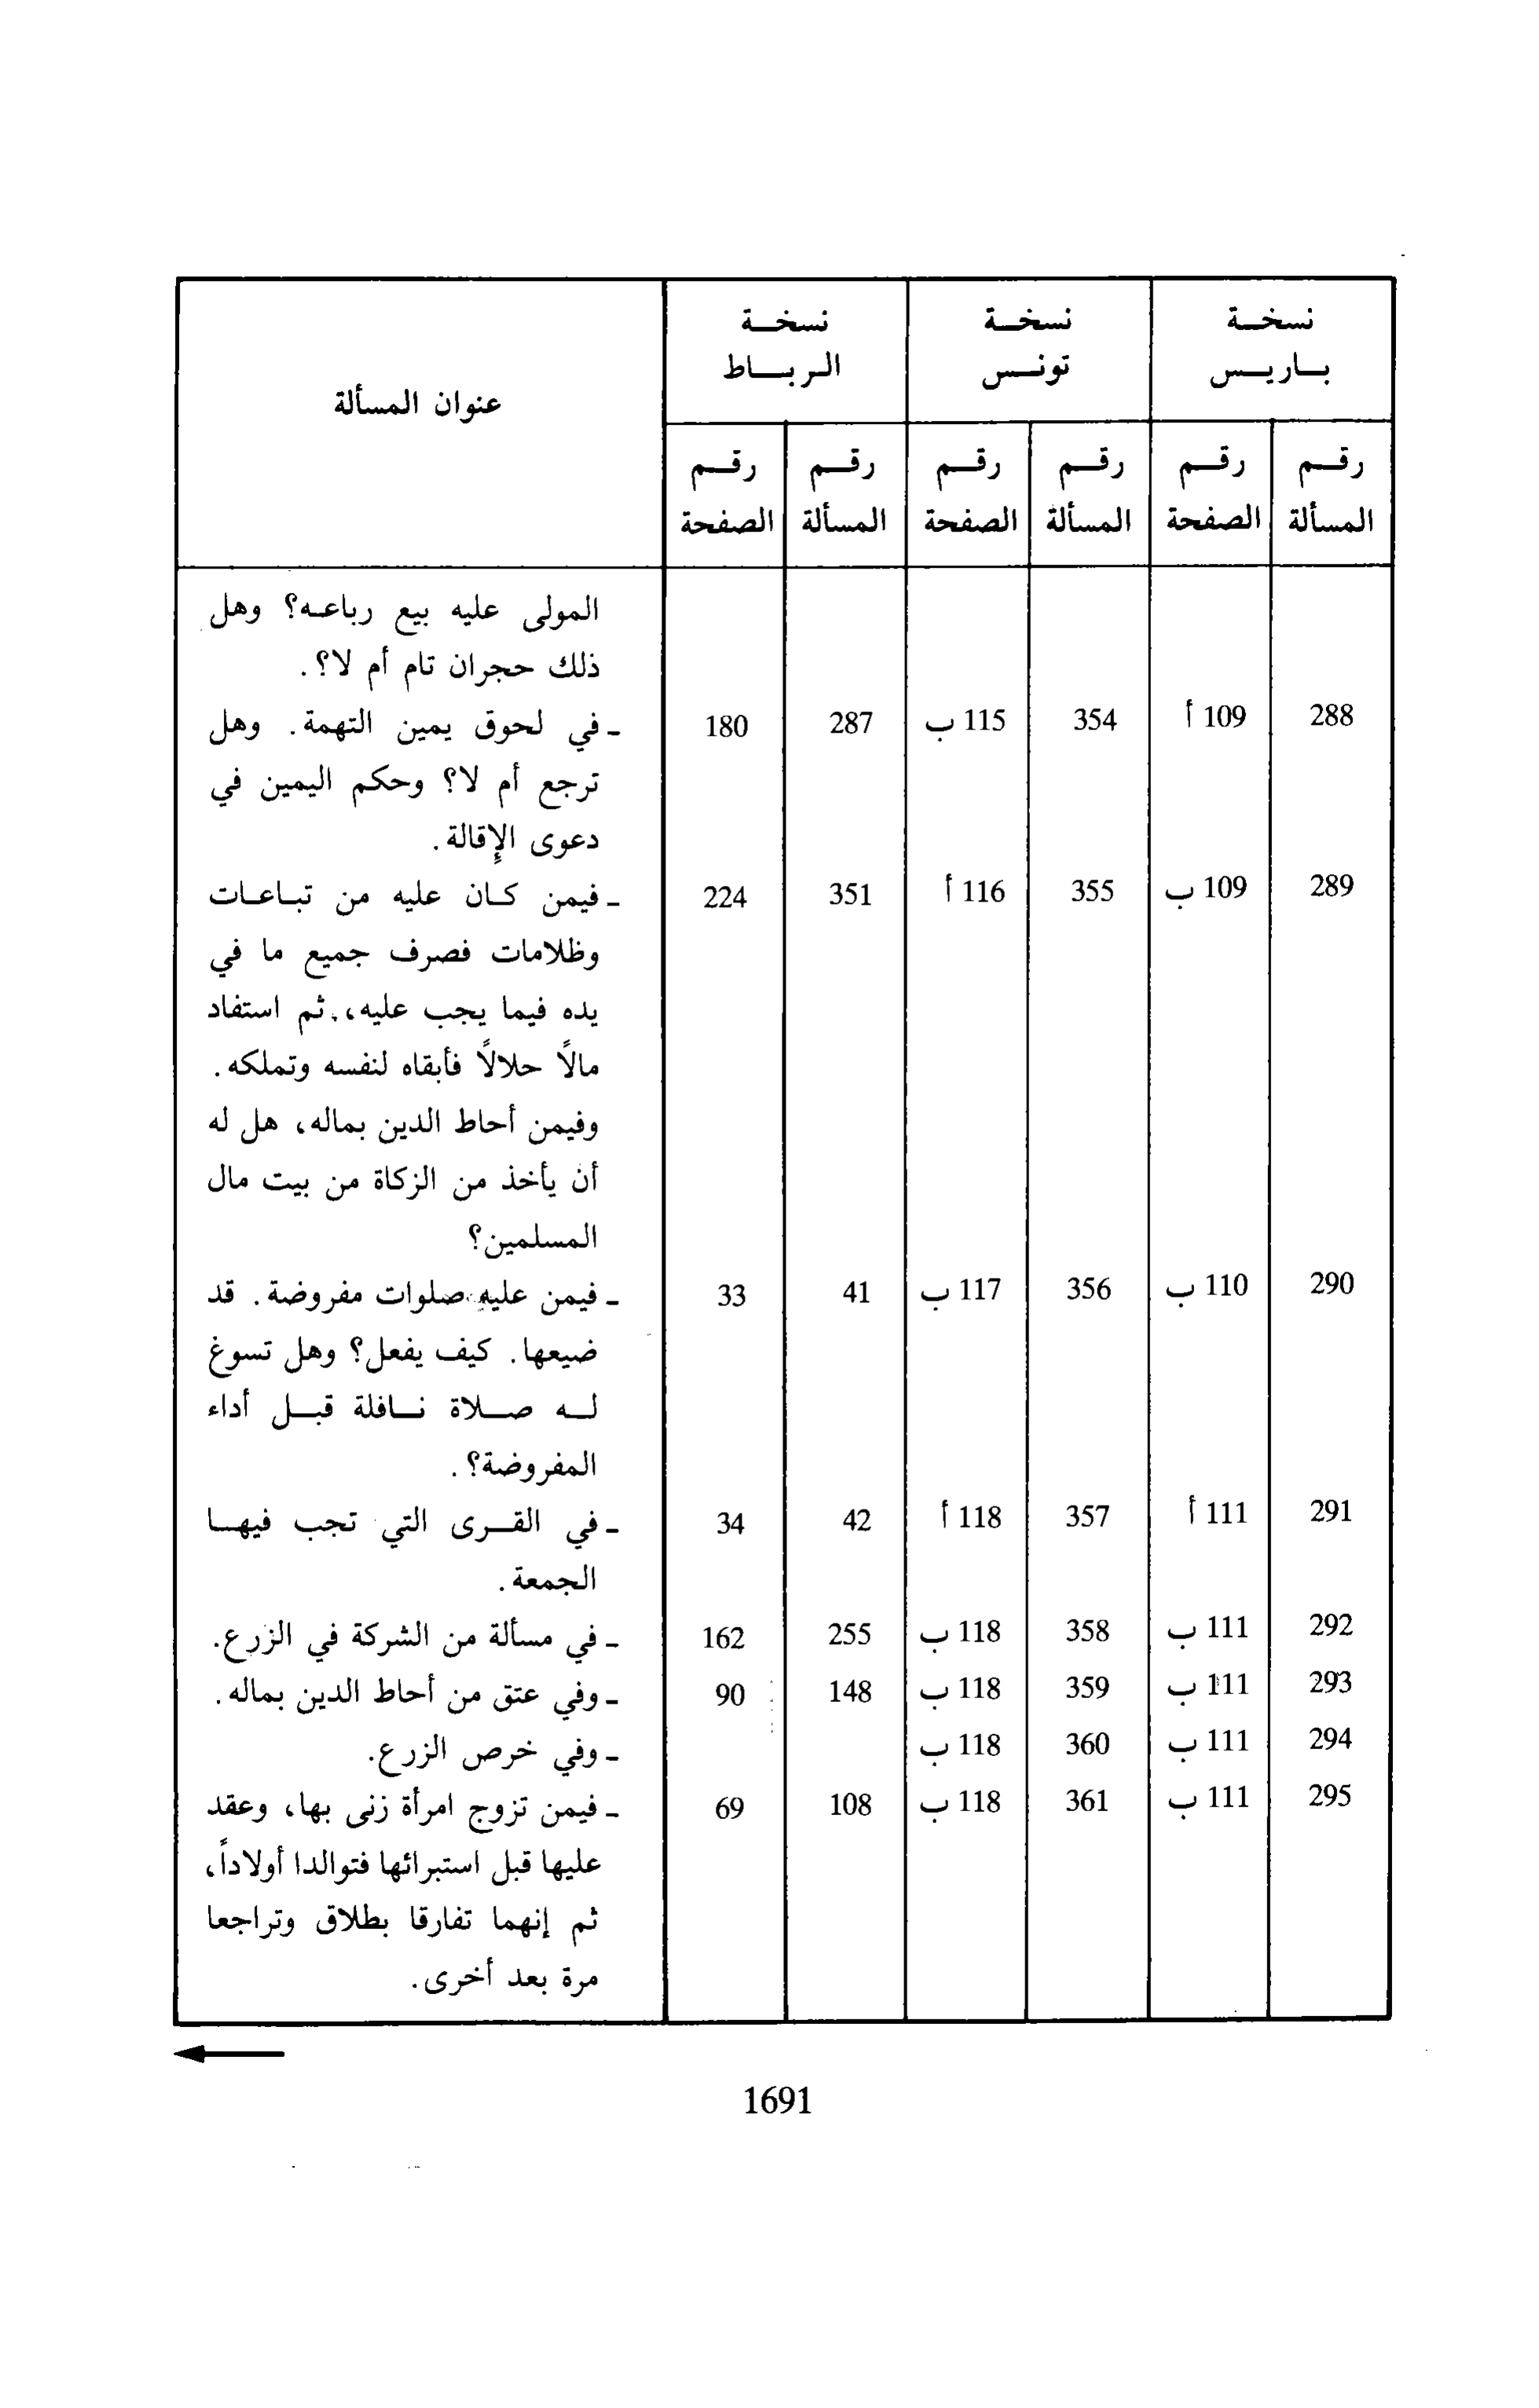 نسخة نسخة نسخة
باريس تونس الرباط عنوان المسألة
رقم رقم رقم رقم رقم رقم
المسألة الصفحة المسألة الصفحة المسألة الصفحة
المولى عليه بيع رباعه؟ وهل
ذلك حجران تام أم لا؟.
288 109 أ 354 115 ب 287 180 - في لحوق يمين التهمة. وهل
ترجع أم لا؟ وحكم اليمين في
دعوى الإقالة.
289 109 ب 355 116 أ 351 224 - فيمن كان عليه من تباعات
وظلامات فصرف جميع ما في
يده فيما يجب عليه، ثم استفاد
مالاً حلالاً فأبقاه لنفسه وتملكه.
وفيمن أحاط الدين بماله، هل له
أن يأخذ من الزكاة من بيت مال
المسلمين؟
290 110 ب 356 117 ب 41 33 - فيمن عليه صلوات مفروضة. قد
ضيعها. كيف يفعل؟ وهل تسوغ
له صلاة نافلة قبل أداء
المفروضة؟.
291 111 أ 357 118 أ 42 34 - في القرى التي تجب فيها
الجمعة.
292 111 ب 358 118 ب 255 162 - في مسألة من الشركة في الزرع.
293 111 ب 359 118 ب 148 90 - وفي عتق من أحاط الدين بماله.
294 111 ب 360 118 ب - وفي خرص الزرع.
295 111 ب 361 118 ب 108 69 - فيمن تزوج امرأة زنى بها، وعقد
عليها قبل استبرائها فتوالدا أولاداً،
ثم إنهما تفارقا بطلاق وتراجعا
مرة بعد أخرى.
1691